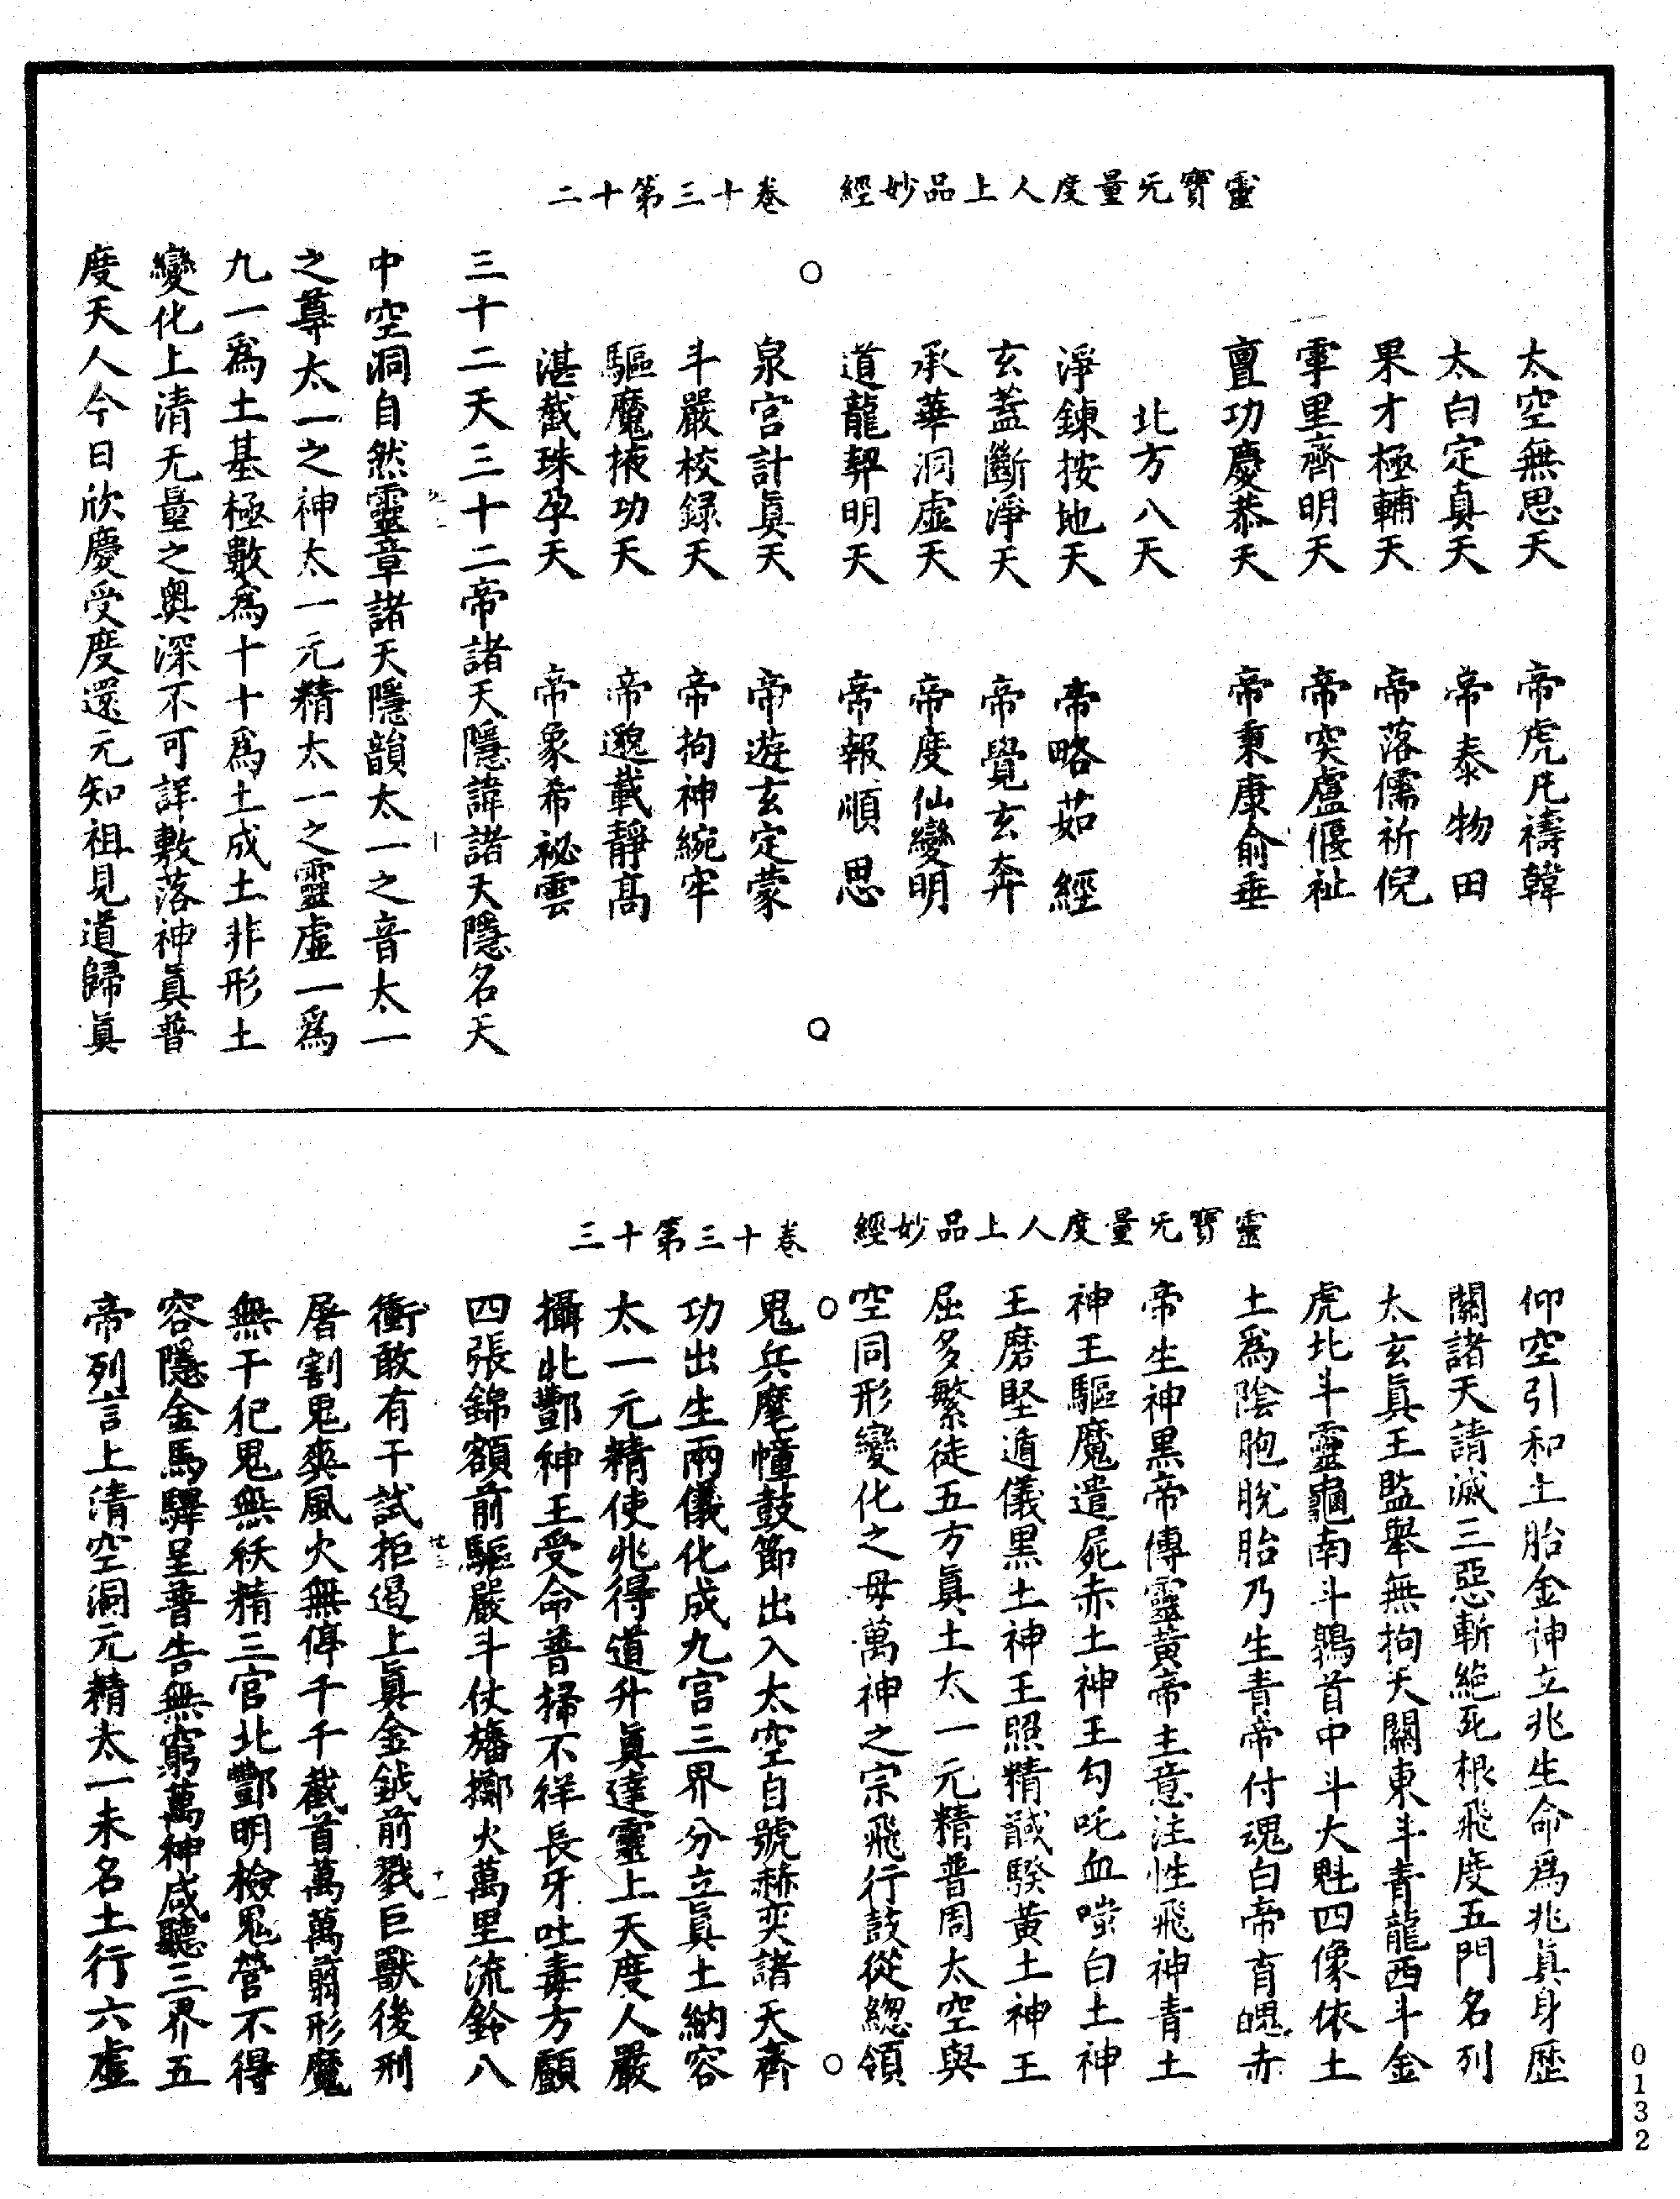 靈寶无量度人上品妙經　卷十三第十二
太空無思天　帝虎𠃵禱韓
太白定真天　帝泰物田
果才極輔天　帝落儒祈倪
雩里齊明天　帝突盧偃祉
亶功慶恭天　帝秉康俞垂
北方八天
淨鍊按地天　帝略茹經
玄蓋斷淨天　帝覺玄奔
承華洞虛天　帝度仙變明
道龍契明天　帝報順思
泉宮計眞天　帝遊玄定蒙
斗嚴校録天　帝拘神綩牢
驅魔掖功天　帝邈載靜高
湛截珠孕天　帝象希祕雲
三十二天三十二帝諸天隱諱諸天隱名天
中空洞自然靈章諸天隱韻太一之音太一
之尊太一之神太一元精太一之靈虛一爲
九一爲土基極數爲十十爲土成土非形土
變化上清无量之奥深不可詳敷落神眞普
度天人今日欣慶受度還元知祖見道歸眞
靈寶无量度人上品妙經　卷十三第十三
仰空引和土胎金神立兆生命爲兆真身歷
關諸天請滅三惡斬絶死根飛度五門名列
太玄眞王監舉無拘天關東斗青龍西斗金
虎北斗靈龜南斗鶉首中斗大魁四像依土
土爲陰胞脫胎乃生青帝付魂白帝育魄赤
帝生神黒帝傳靈黄帝主意注性飛神青土
神王驅魔遣屍赤土神王勾吒血𠹌白土神
王磨堅遁儀黒土神王照精馘騤黄土神王
屈多繁徒五方眞土太一元精普周太空與
空同形變化之母萬神之宗飛行鼓從總領
鬼兵麾幢鼓節出入太空自號赫奕諸天齊
功出生兩儀化成九宮三界分立眞土納容
太一元精使兆得道升眞達靈上天度人嚴
攝北酆神王受命普掃不祥長牙吐毒方顱
四張錦額前驅嚴斗仗旛擲火萬里流鈴八
衝敢有干試拒遏上眞金鉞前戮巨獸後刑
屠割鬼爽風火無停千千截首萬萬翦形魔
無干犯鬼無袄精三官北酆明檢鬼營不得
容隱金馬驛呈普告無窮萬神咸聽三界五
帝列言上清空洞元精太一未名土行六虛
0132